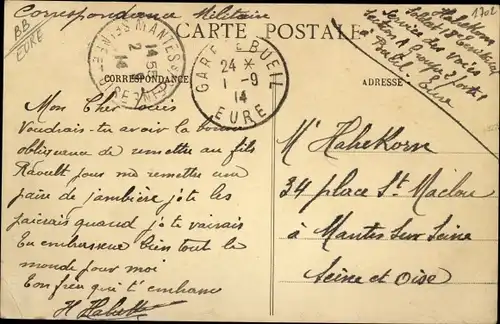 Correspondance Militaire
BB
EURE
CARTE POSTALE
CORRESPONDANCE
ADRESSE
MANTES
14 55
2 - 9
14
GARE BUEIL
24 *
1 - 9
14
EURE
1701
Habekorn
Soldat 18e
Service des Voies
Section A Groupe 2 poste 1
à Bueil
Eure
Mon Cher Louis
Voudrais-tu avoir la bonne
obligeance de remettre au fils
Raoult pour me remettre une
paire de jambière je te les
paierais quand je te verrais
Tu embrasseras bien tout le
monde pour moi
Ton frère qui t'embrasse
H Habek
Mr Habekorn
34 place St Maclou
à Mantes Sur Seine
Seine et Oise